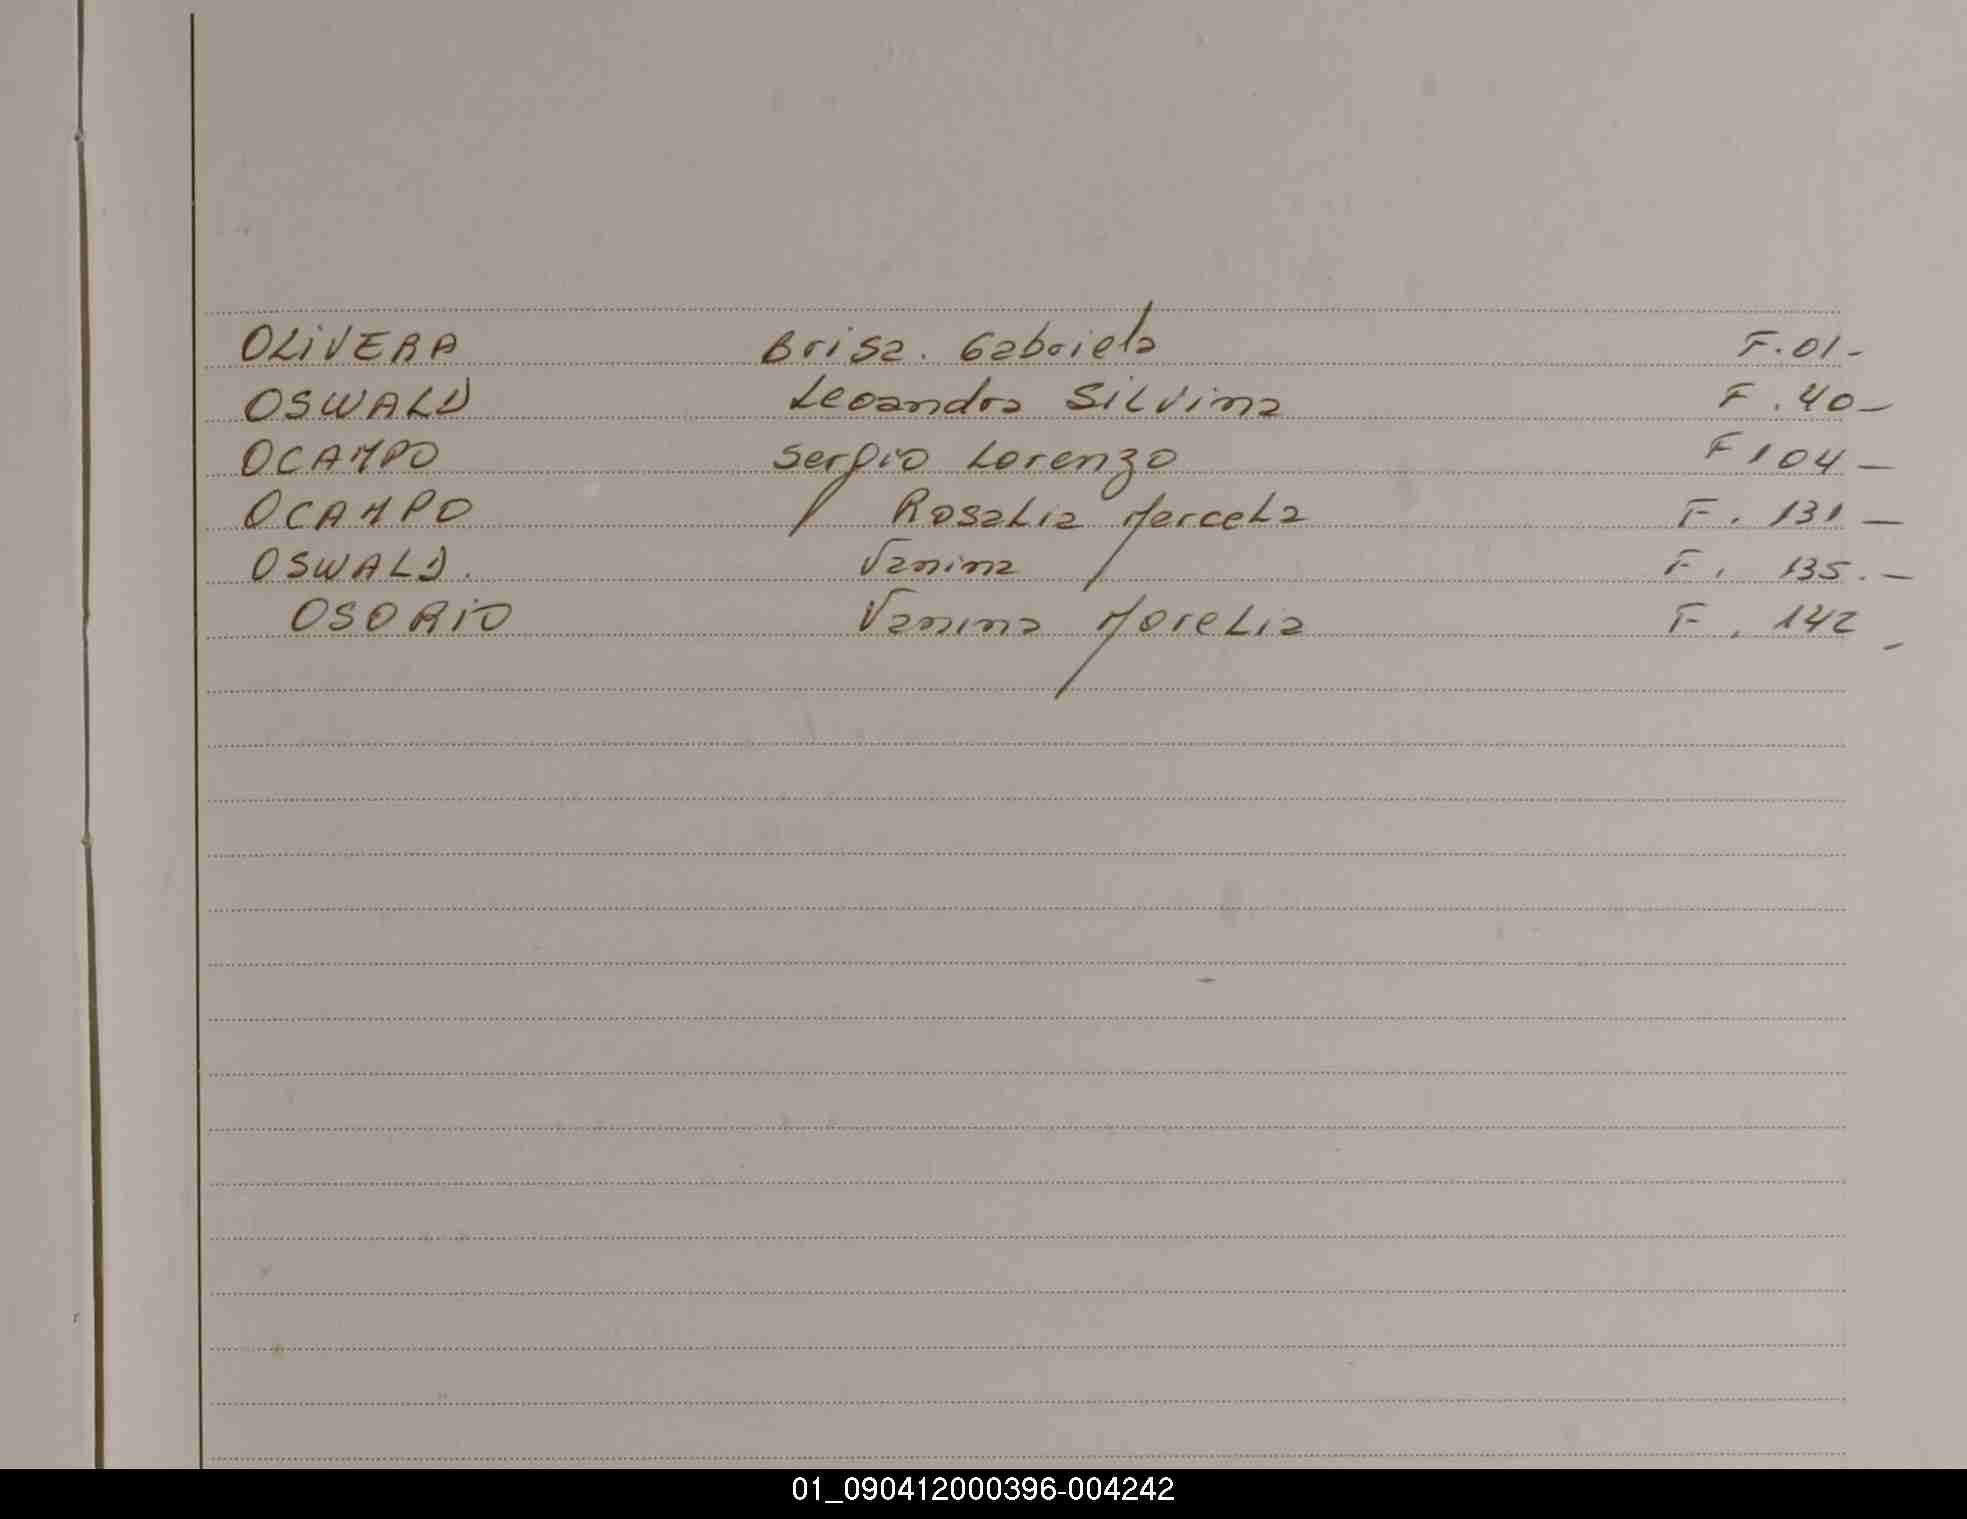 OLIVERA Brisa. Gabriela F.01-
OSWALD Leoandra Silvina F.40-
OCAMPO Sergio Lorenzo F104-
OCAMPO Rosalia Marcela F. 131-
OSWALD. Vanina F. 135.-
OSORIO Vanina Morelia F. 142-
01_090412000396-004242